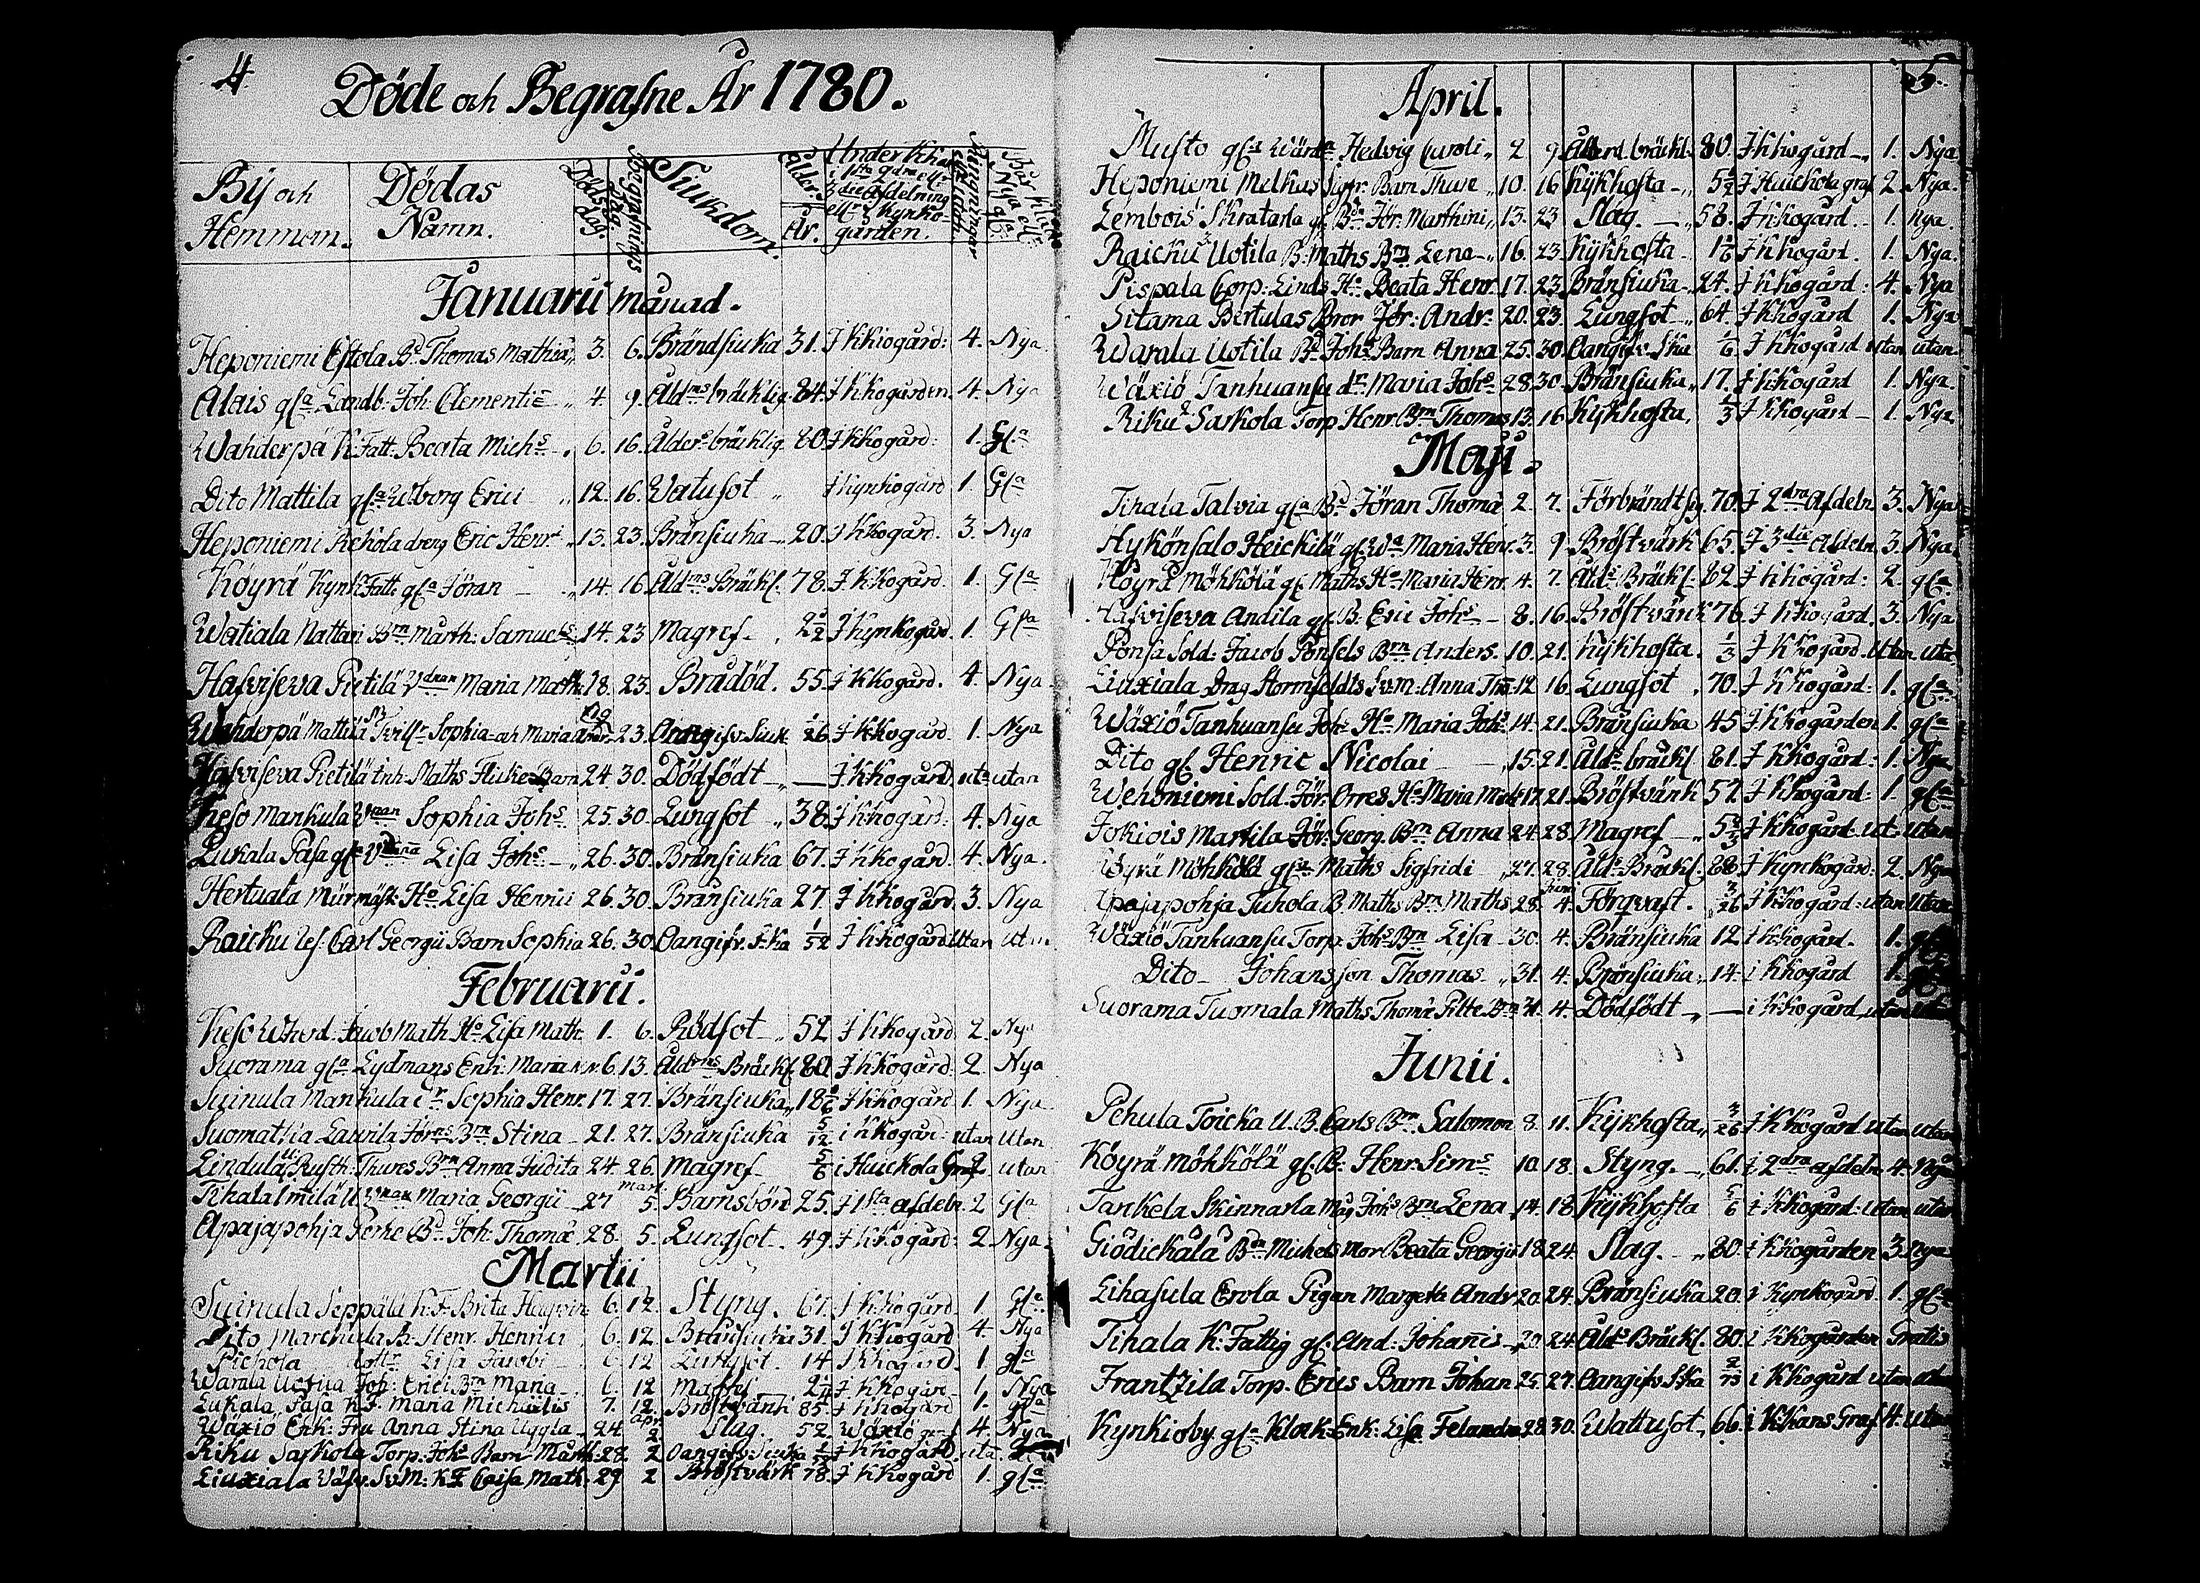 4.
Döde och Begrafne År 1780.
By och Hemmom. Dödas Namn. Döds dag. Begrafnings dag. Siukdom. Ålder. År. Under Kkan i 1sta 2dra ell 3die afdelning ell Kyrkogården. Ringningar Bår kläde Nya ell
Januarii månad.
Heponiemi Eskola Bd Thomas Mathiæ 3. 6. Brändsiuka 31. J kkiogård: 4. Nya.
Alais gla Landb. Joh. Clementis 4. 9. Åldms bräcklig 84. J kkogården. 4. Nya
Wahderpä K: Fatt: Beata Michs 6. 16. Ålders bräcklig 80. J kkogård: 1. Gla
Dito Mattila gla Walborg Erici 12. 16. Watusot J kyrkogård 1. Gla
Heponiemi dreng Eric Henr. 13. 23. Bränsiuka 20. J kkogård. 3. Nya
Köyrä Kyrk Fatt: gla Jöran 14. 16. Åldms Bräckl. 78. J kkogård. 1. Gla
Watiala Nattari Brn Marth: Samuels 14. 23 Magref J kyrkogård. 1. Gla
Hafviseva Pietilä Maria Math: 18. 23. Brådöd. 55. J kkogård. 4. Nya
Wahderpä Mattila Sophia och Maria 23. Oangifv. Siuk J kkogård: 1. Nya
Hafviseva Pietilä Inh. Maths Flicke Barn 24. 30. Dödfödt J kkogård. utan
Keso Mankula Sophia Johs 25. 30. Lungsot 38. J kkogård. 4. Nya
Lukala Pasa gla Lisa Johs 26. 30. Bränsiuka 67. J kkogård. 4. Nya.
Hertuala Hu Lisa Henrici 26. 30. Bränsiuka 27. J kkogård. 3. Nya
Raicku Carl Georgii Barn Sophia 26. 30. Oangifv. Ska 1/52 J kkogård utan utan
Februarii.
Keso Jacob Math Hu Lisa Math. 1. 6. Rödsot 52 J kkogård 2. Nya
Suorama gla Lydmans Enk: Maria 6. 13. Ålderms Bräckl. 80. J kkogård. 2. Nya
Suinula Mankula Sophia Henr. 17. 27. Bränsiuka 18 J kkogård 1. Nya
Suomatsia Laurila Jörns Brn Stina 21. 27. Bränsiuka 5/12 i kkogård: utan utan
Lindula Rusth: Thures Brn Anna Judita 24. 26. Magref 5/6 i Huickola Graf utan
Tihala Maria Georgii 27 mart 5. Barnsbörd 25. J 1sta afdeln. 2 Gla
Apajapohja Perhe Bd Joh. Thomæ 28. 5. Lungsot 49. J kkogård: 2. Nya.
Martii
Suinula Seppälä K.F. Brita 6. 12. Styng. 67. J kkogård 1. Gla
Dito B: Henr. Henrici 6. 12 Bränsiuka 31. J kkogård 4. Nya
Pichola Lisa Jacobi 6. 12 Lungsot. 14 J kkogård. 1. gla
Warala Uotila Joh: Erici Brn Maria 6. 12 J kkogård 1. Nya
Lukala Pasa K.F. Maria Michaelis 7. 12. Bröstvärk 85. J kkogård 1. gla
Wäxiö Enk: Fru Anna Stina Uggla 24. apr 2 Slag. 52 Wäxiö graf 4. Nya
Riku Saskola Torp. Johs Barn Marth: 28. 2 Oangifv. Siuka J kkogård. uta.
Liuxiala Math: 29 2 Bröstvärk 78. J kkogård 1. gla
5.
April.
Musto gla Wärda Hedvig Caroli 2 9. Ålderd. bräckl. 80. J kkogård 1. Nya
Heponiemi Melkas Sigfr: Barn Thure 10. 16 Kykhosta 5/12 J Huickola graf 2. Nya.
Lembois Skratarla gl. Bdn Jör: Marthini 13. 23 Slag. 58. J kkogård 1. nya.
Raicku Uotila B: Maths Brn Lena 16. 23 Kykhosta 1 1/6 J kkogård. 1. Nya.
Pispala Corp: Linds Hu Beata Henr. 17. 23. Bränsiuka 24. J kkogård: 4. Nya
Sitama Bertulas Bror Jör: Andr: 20. 23 Lungsot 64. J kkogård 1. Nya
Warala Uotila Bd Johs Barn Anna 25. 30. Oangifv. Ska 1/6 J kkogård utan utan
Wäxiö Tanhuansu dr Maria Johs 28. 30. Bränsiuka 17. J kkogård 1. Nya.
Riku Saskola Torp Henr: Brn Thomas 13. 16 Kykhosta 1/3 J kkogård 1. Nya
Maji.
Tihala Talvia gla Bd Jöran Thomæ 2. 7. Förbrändt sig 70. J 2dra afdeln 3. Nya
Hykönsalo Heickilä gl. Maria Henr. 3. 9. Bröstvärk 65. J 3die afdeln. 3. Nya
Köyrä Möhkölä gl. Maths Hu Maria Henr. 4. 7. Åld: Bräckl. 82. J kkogård: 2. gla
Hafviseva Andila gl. B. Eric Johs 8. 16. Bröstvärk 76. J kkogård. 3. Nya
Ponsa Sold: Jacob Ponsels Brn Anders. 10. 21. Kykhosta. 1/3 J kkogård. utan uta
Liuxiala Drag Stormfeldts Sv.M: Anna 12 16. Lungsot 70. J kkogård: 1. gla
Wäxiö Tanhuansu Johs Hu Maria Johs 14. 21. Bränsiuka 45 J kkogården 1. gla
Dito gl. Henric Nicolai 15. 21. Åld: bräckl. 81. J kkogård: 1. Nya
Wehoniemi Sold. Jör: Orres Hu Maria 17. 21. Bröstvärk 52 J kkogård: 1. gla
Jokiois Markila Jör: Georg. Brn Anna 24. 28. Magref J kkogård. ut. utan
Köyrä Möhkölä gla Maths Sigfridi 27. 28. Åld: Bräckl. 88 J kyrkogård: 2. Nya
Apajapohja Tuhola B. Maths Brn Maths 28. Juni 4. Förqvaft. 3/26 J kkogård: utan utan
Wäxiö Tanhuansu Torp: Johs Brn Lisa 30. 4. Bränsiuka 12 i kkogård. 1. gla
Dito Johansson Thomas 31. 4. Bränsiuka 14. i kkogård 1.
Suorama Tuomala Maths Thomæ 31. 4. Dödfödt i kkogård utan
Junii.
Pehula Toicka U. B. Carls Brn Salomon 8. 11. Kykhosta 3/26 i kkogård utan utan
Köyrä Möhkölä gl. B: Henr. Sims 10. 18. Styng. 61. i 2dra afdeln 4. Nya
Tankela Skinnarla Johs Brn Lena 14. 18. Kykhosta 5/6 i kkogård: utan utan
Giödickälä Bn Michels mor Beata Georgii 18. 24. Slag. 80. i kkogården 3. nya
Lihasula Erola Pigan Margeta Andr. 20. 24. Bränsiuka 20. i kyrkogård. 1. gla
Tihala K. Fattig gl. And. Johanis 20. 24. Åld: Bräckl. 80. i kkogården Gratis
Frantzila Torp. Erics Barn Johan 25. 27. Oangifv. Ska 2/73 i kkogård utan
Kyrkioby gla Klock. Enk: Lisa Felandra 28. 30. Wattusot. 66. i kkans Graf 4.